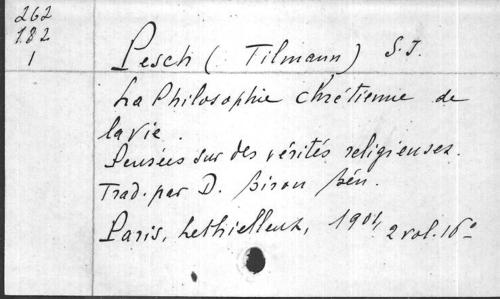 262
182
1
Pesch (Tilmann) S.J.
La Philosophie chrétienne de
la vie.
Pensées sur des vérités religieuses.
Trad. par D. Biron Bén.
Paris, Lethielleux, 1904, 2 vol. 16°